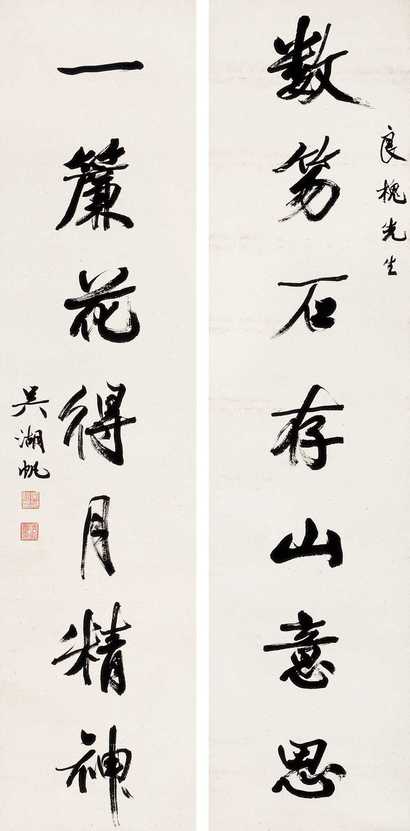 数笏石存山意思
良槐先生
一簾花得月精神
吴湖帆